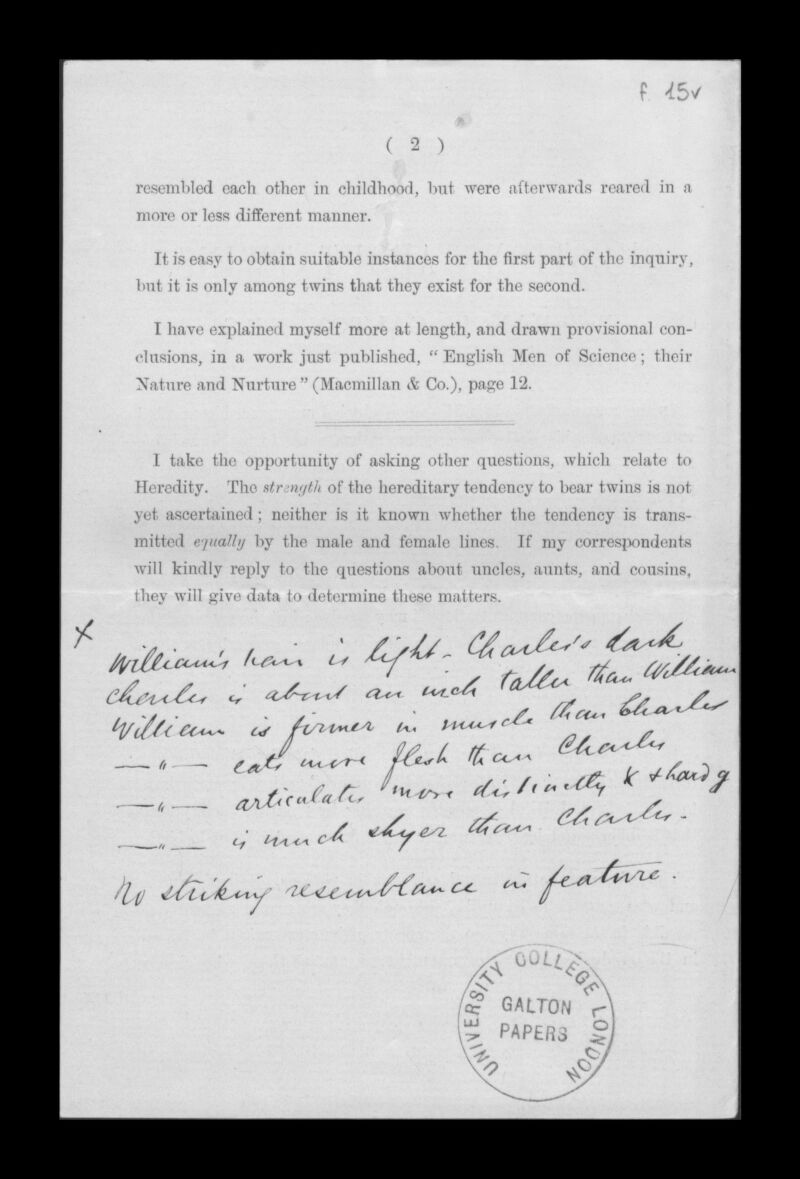 f 15v
( 2 )
resembled each other in childhood, but were afterwards reared in a
more or less different manner.
It is easy to obtain suitable instances for the first part of the inquiry,
but it is only among twins that they exist for the second.
I have explained myself more at length, and drawn provisional con-
clusions, in a work just published, “ English Men of Science ; their
Nature and Nurture ” (Macmillan & Co.), page 12.
I take the opportunity of asking other questions, which relate to
Heredity. The strength of the hereditary tendency to bear twins is not
yet ascertained ; neither is it known whether the tendency is trans-
mitted equally by the male and female lines. If my correspondents
will kindly reply to the questions about uncles, aunts, and cousins,
they will give data to determine these matters.
x
William's hair is light - Charles's dark
Charles is about an inch taller than William
William is firmer in muscle than Charles
—"— eats more flesh than Charles
—"— articulates more distinctly &
—"— is much shyer than Charles -
No striking resemblance in feature.
UNIVERSITY COLLEGE LONDON
GALTON
PAPERS